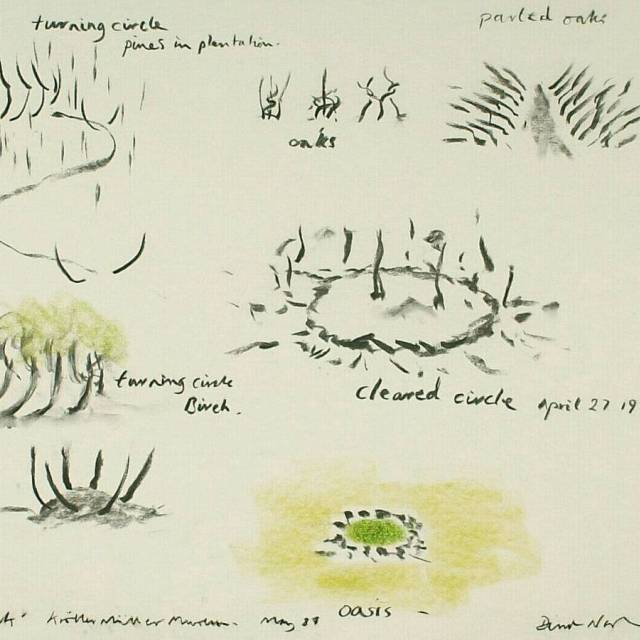 turning circle
pines in plantation.
parted oaks
oaks
turning circle
Birch.
cleared circle April 27 19
Kröller Müller Museum. May 87
oasis